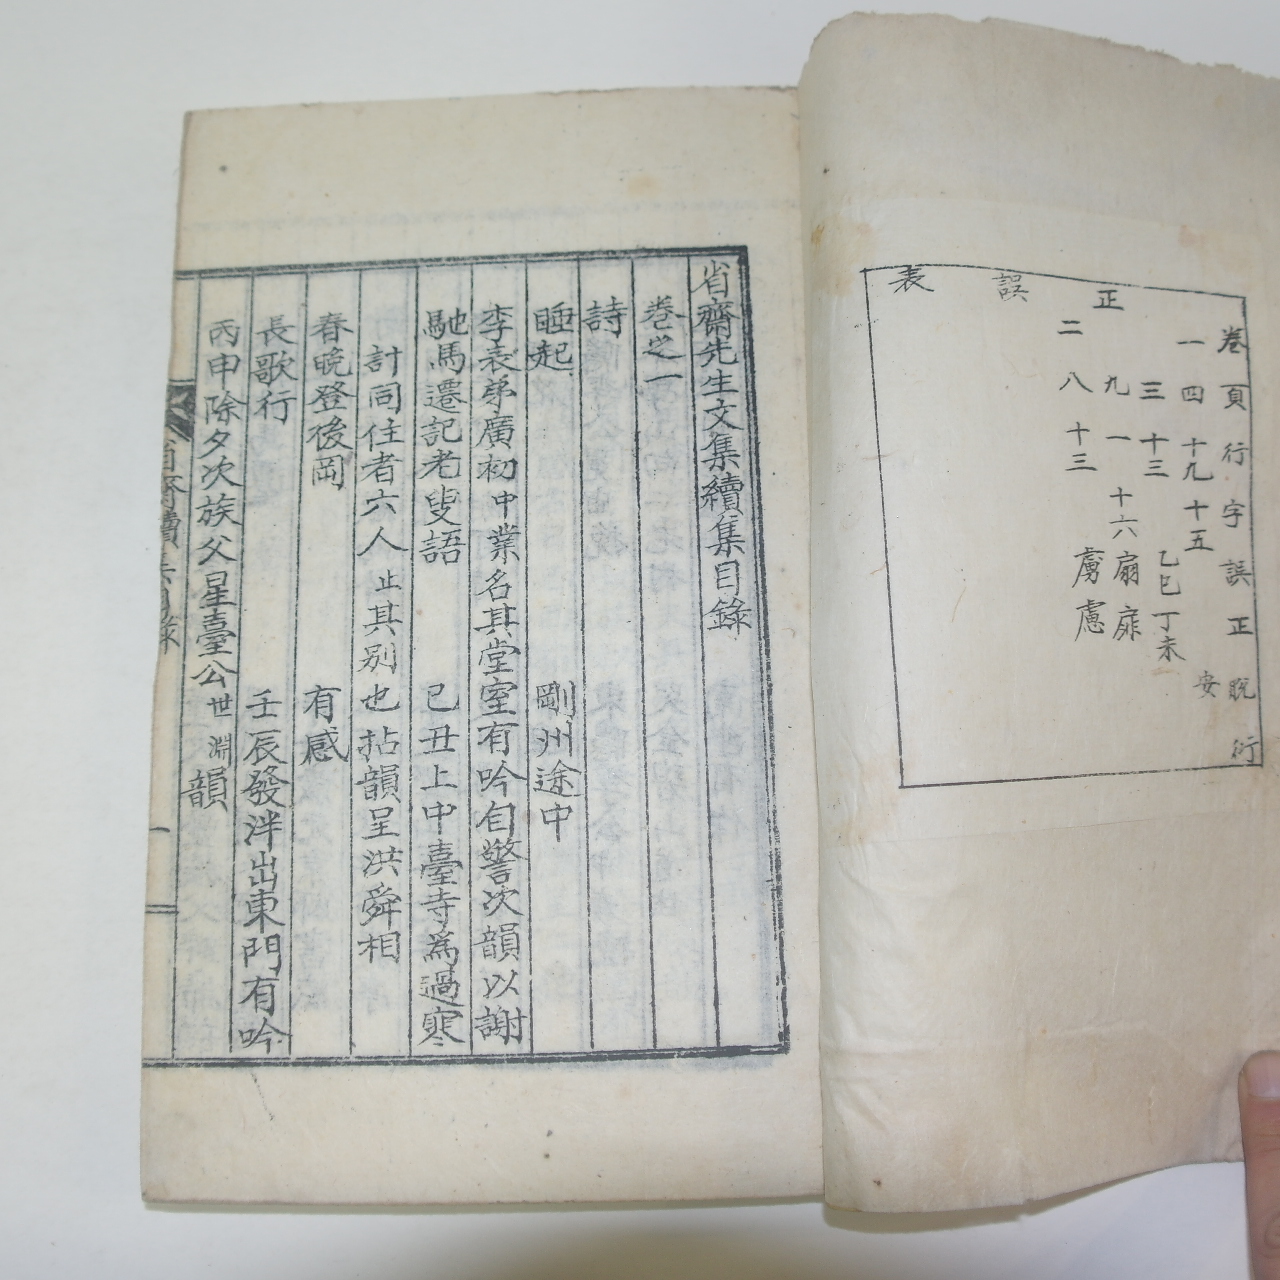 正誤表
卷頁行字誤正脫衍
一四十九十五安
三十三乙巳丁未
九一十六扇扉
二八十三虜慮
省齋先生文集續集目錄
卷之一
詩
睡起 剛州途中
李表弟廣初中業名其堂室有吟自警次韻以謝
馳馬遷記老叟語 己丑上中臺寺爲過寒
計同住者六人止其別也拈韻呈洪舜相
春晩登後岡 有感
長歌行 壬辰發泮出東門有吟
丙申除夕次族父星臺公世淵韻
一